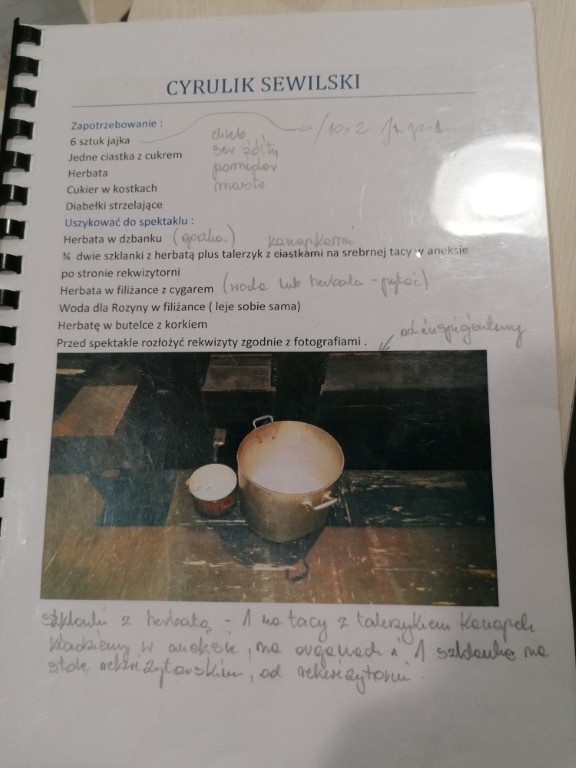 CYRULIK SEWILSKI
Zapotrzebowanie :
6 sztuk jajka
Jedne ciastka z cukrem
Herbata
Cukier w kostkach
Diabełki strzelające
chleb
ser żółty
pomidor
masło
/10x2
Uszykować do spektaklu :
Herbata w dzbanku (gorąca) kanapkami
¾ dwie szklanki z herbatą plus talerzyk z ciastkami na srebrnej tacy w aneksie
po stronie rekwizytorni
Herbata w filiżance z cygarem (woda lub herbata - pytać)
Woda dla Rozyny w filiżance ( leje sobie sama)
Herbatę w butelce z korkiem
Przed spektakle rozłożyć rekwizyty zgodnie z fotografiami .
szklanki z herbatą - 1 na tacy z talerzykiem kanapek
kładziemy w aneksie, na organach i 1 szklankę na
stole rekwizytorskim, od rekwizytorni.